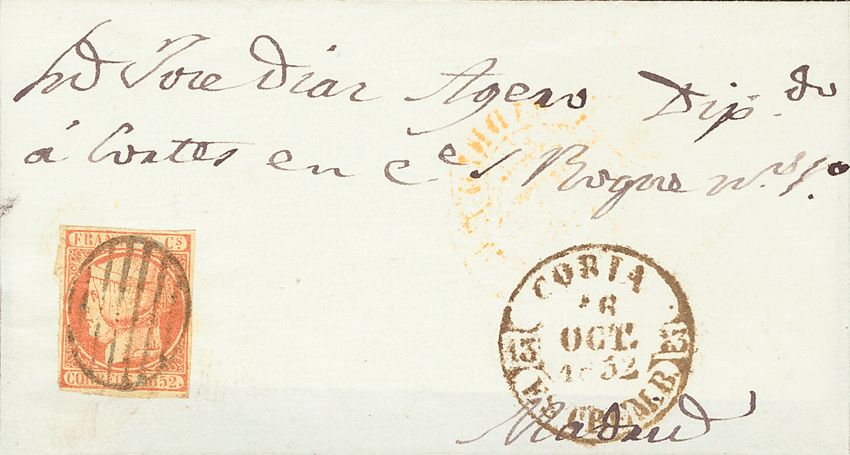 Sr D Jose Diaz Agero Dip.do
á Cortes en c.e S Roque nº 1º
FRANCO Cs
CORREOS 1852.
CORIA
16
OCT.
1852
13 13
EXTREM.B.
Madrid